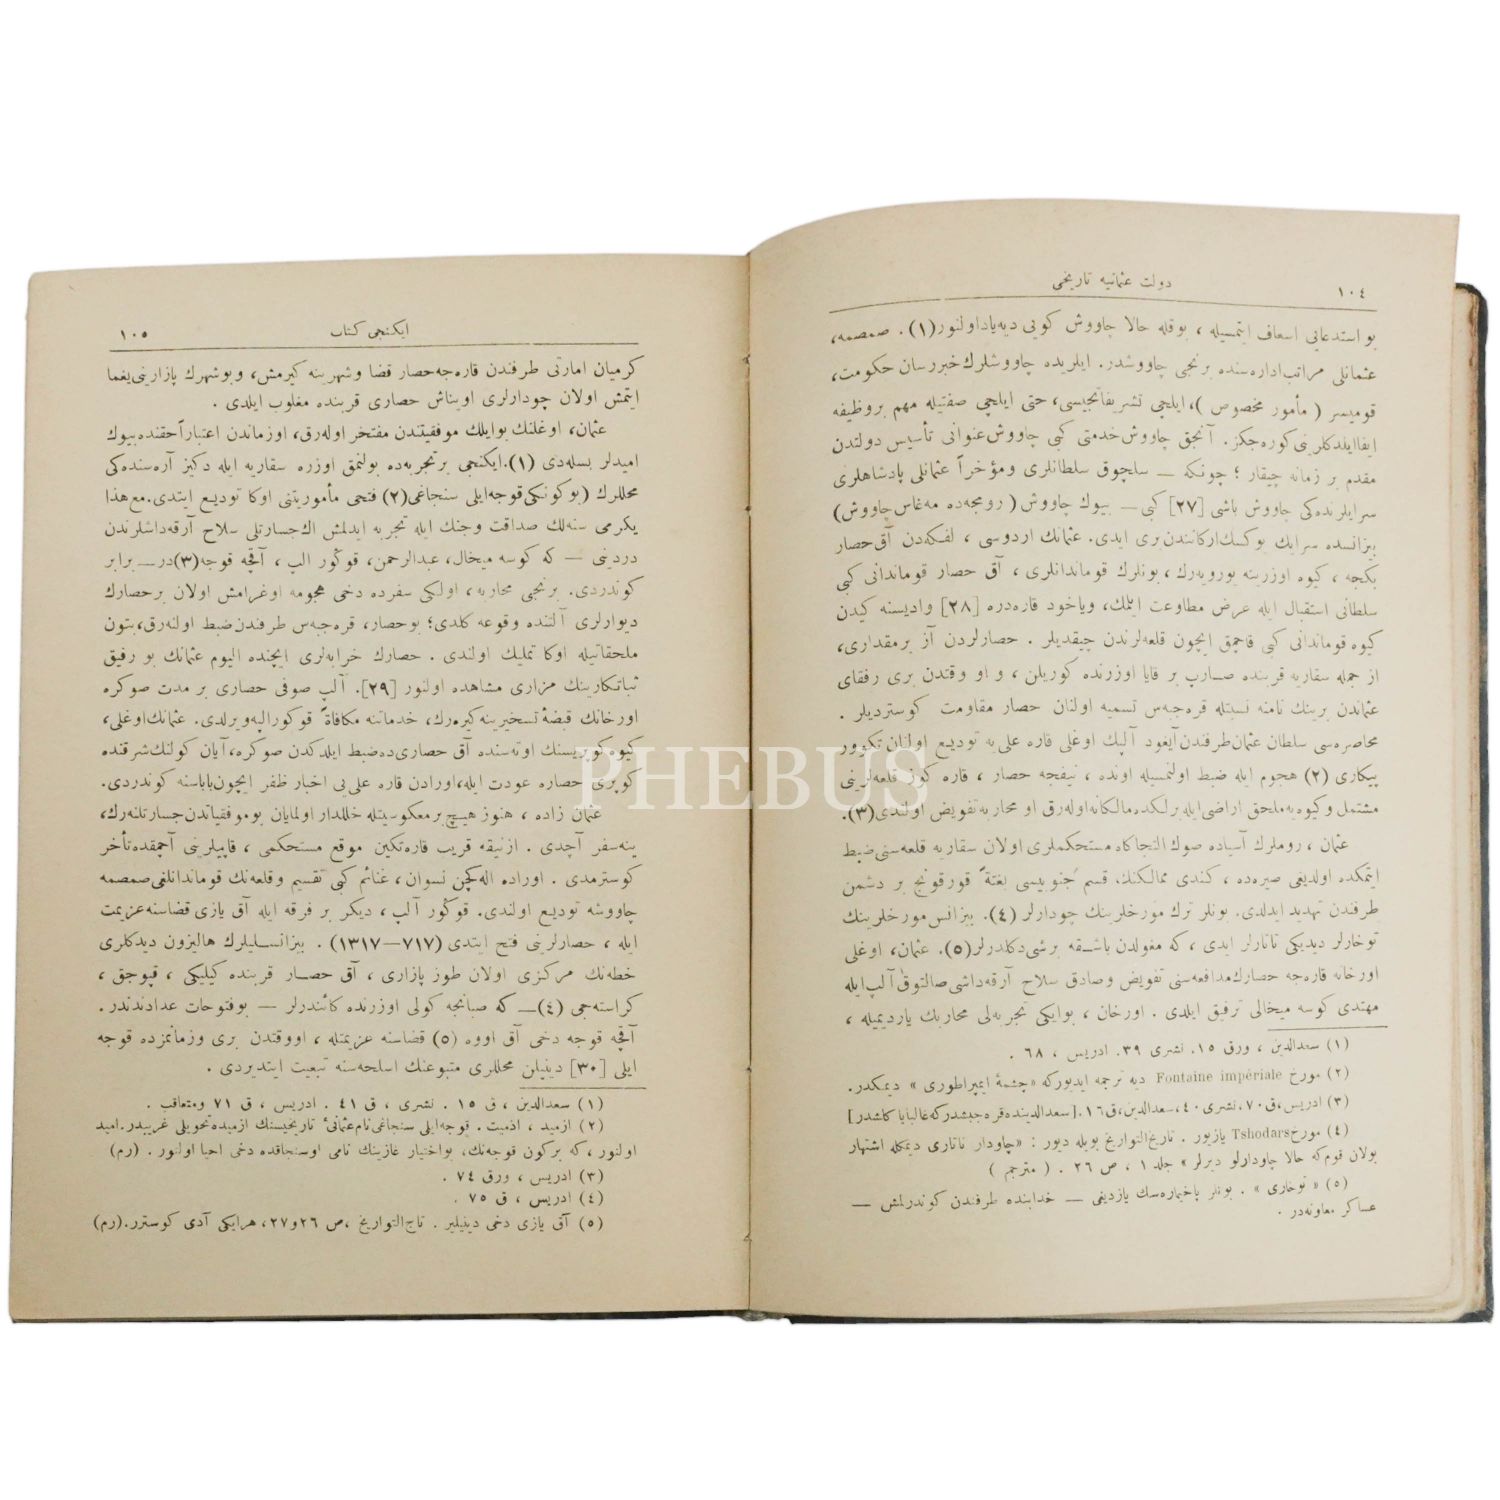 ١٠٤
دولت عثمانیه تاریخی
بو استدعایی اسعاف ایتمسیله ، بوقله حالا چاووش کویی دیه یاد اولنور (١) . صمصمه،
عثمانلی مراتب اداره سنده برنجی چاووشدر. ایلریده چاووشلرك خبررسان حکومت،
قومیسر ( مأمور مخصوص )، ایلچی تشریفاتجیسی، حتی ایلچی صفتیله مهم بر وظیفه
ایفا ایلدکلرینی کوره جکز. آنجق چاووش خدمتی کبی چاووش عنوانی تأسیس دولتدن
مقدم بر زمانه چیقار ؛ چونکه — سلچوق سلطانلری و مؤخراً عثمانلی پادشاهلری
سرایلرنده کی چاووش باشی [٢٧] کبی — بیوك چاووش ( رومجه ده مه غاس چاووش)
بیزانسده سرایك یوکسك ارکانندن بری ایدی. عثمانك اردوسی ، لفکه دن آق حصار
بکجه ، کیوه اوزرینه یورویه رك ، بونلرك قوماندانلری ، آق حصار قوماندانی کبی
سلطانی استقبال ایله عرض مطاوعت ایلمك، ویاخود قاره دره [٢٨] وادیسنه کیدن
کیوه قوماندانی کبی قاچمق ایچون قلعه لرندن چیقدیلر . حصارلردن آز بر مقداری،
از جمله سقاریه قربنده صارپ بر قایا اوزرنده کوریلن ، و او وقتدن بری رفقای
عثماندن برینك نامنه نسبتله قره جبس تسمیه اولنان حصار مقاومت کوستردیلر .
محاصره سی سلطان عثمان طرفندن آیغود آلپك اوغلی قاره علی یه تودیع اولنان تکوور
پیکاری (٢) هجوم ایله ضبط اولنمسیله اونده ، نیفجه حصار ، قاره کوز قلعه لرینی
مشتمل و کیوه یه ملحق اراضی ایله برلکده مالکانه اوله رق او محاربه تفویض اولندی (٣).
عثمان ، روملرك آسیاده صوك التجاکاه مستحکملری اولان سقاریه قلعه سنی ضبط
ایتمکده اولدیغی صیره ده ، کندی ممالکنك قسم جنوبیسی بغتةً قورقونج بر دشمن
طرفندن تهدید ایدلدی. بونلر ترك مورخلرینك چودارلر (٤). بیزانس مورخلرینك
توخارلر دیدیکی تاتارلر ایدی ، که مغولدن باشقه برشی دکلدرلر (٥). عثمان، اوغلی
اورخانه قاره جه حصارك مدافعه سنی تفویض و صادق سلاح آرقه داشی صالتوق آلپ ایله
مهتدی کوسه میخالی ترفیق ایلدی . اورخان ، بوایکی تجربه لی محاربك یاردیمیله ،
(١) سعدالدین ، ورق ١٥، نشری ٣٩. ادریس ، ٦٨ .
(٢) مورخ Fontaine impériale دیه ترجمه ایدیور که «چشمۀ ایمپراطوری » دیمکدر.
(٣) ادریس، ق ٧٠، نشری ٤٠، سعدالدین، ق ١٦. [سعدالدینده قره جبشدر که غالبا یا کلشدر]
(٤) مورخ Tshodars یازیور . تاریخ التواریخ بویله دیور : «چاودار تاتاری دیمکله اشتهار
بولان قوم که حالا چاودارلو دیرلر » جلد ١ ، ص ٢٦ . ( مترجم )
(٥) « توخاری » . بونلر پاخیماره سك یازدیغی — خدابنده طرفندن کوندرلمش —
عساکر معاونه در .
ایکنجی کتاب
١٠٥
کرمیان امارتی طرفندن قاره جه حصار قضا و شهرینه کیرمش، و بو شهرك پازارینی یغما
ایتمش اولان چودارلری اویناش حصاری قربنده مغلوب ایلدی .
عثمان، اوغلنك بو ایلك موفقیتندن مفتخر اوله رق، اوزماندن اعتباراً حقنده بیوك
امیدلر بسله دی (١). ایکنجی بر تجربه ده بولنمق اوزره سقاریه ایله دکیز آره سنده کی
محللرك (بو کونکی قوجه ایلی سنجاغی (٢) فتحی مأموریتنی اوکا تودیع ایتدی. مع هذا
یکرمی سنه لك صداقت و جنك ایله تجربه ایدلمش اك جسارتلی سلاح آرقه داشلرندن
دردینی — که کوسه میخال، عبدالرحمن، قوکور الپ ، آقچه قوجه (٣) در — برابر
کوندردی. برنجی محاربه ، اولکی سفرده دخی هجومه اوغرامش اولان بر حصارك
دیوارلری آلتنده وقوعه کلدی؛ بو حصار، قره جبس طرفندن ضبط اولنه رق، بتون
ملحقاتیله اوکا تملیك اولندی . حصارك خرابه لری ایچنده الیوم عثمانك بو رفیق
ثباتکارینك مزاری مشاهده اولنور [٢٩]. آلپ صوفی حصاری بر مدت صوکره
اورخانك قبضۀ تسخیرینه کیره رك، خدماتنه مکافاةً قوکور الپه ویرلدی. عثمانك اوغلی،
کیوه کوپریسنك اوته سنده آق حصاری ده ضبط ایلدکدن صوکره، آیان کولنك شرقنده
کوپری حصاره عودت ایله، اورادن قاره علی یی اخبار ظفر ایچون باباسنه کوندردی.
عثمان زاده ، هنوز هیچ بر معکوسیتله خللدار اولمایان بو موفقیاتدن جسارتلنه رك،
ینه سفر آچدی . ازنیقه قریب قاره تکین موقع مستحکمی ، قاپیلرینی آچمقده تأخر
کوسترمدی . اوراده اله کچن نسوان ، غنائم کبی تقسیم و قلعه نك قوماندانلغی صمصمه
چاووشه تودیع اولندی. قوکور آلپ ، دیکر بر فرقه ایله آق یازی قضاسنه عزیمت
ایله ، حصارلرینی فتح ایتدی (٧١٧—١٣١٧) . بیزانسلیلرك هالیزون دیدکلری
خطه نك مرکزی اولان طوز پازاری ، آق حصار قربنده کیلیکی ، قپوجق ،
کراسته جی (٤) — که صبانجه کولی اوزرنده کائندرلر — بو فتوحات عدادندندر .
آقچه قوجه دخی آق اووه (٥) قضاسنه عزیمتله ، او وقتدن بری و زمانمزده قوجه
ایلی [٣٠] دینیلن محللری متبوعنك اسلحه سنه تبعیت ایتدیردی .
(١) سعدالدین ، ق ١٥ . نشری ، ق ٤١ . ادریس ، ق ٧١ ومتعاقب .
(٢) ازمید ، اذمیت . قوجه ایلی سنجاغی نام عثمانئ تاریخیسنك ازمیده تحویلی غریبدر. امید
اولنور ، که برکون قوجه نك، بو اختیار غازینك نامی او سنجاقده دخی احیا اولنور . (رم)
(٣) ادریس ، ورق ٧٤ .
(٤) ادریس ، ق ٧٥ .
(٥) آق یازی دخی دینیلیر . تاج التواریخ ، ص ٢٦ و ٢٧، هر ایکی آدی کوسترر. (رم)
PHEBUS